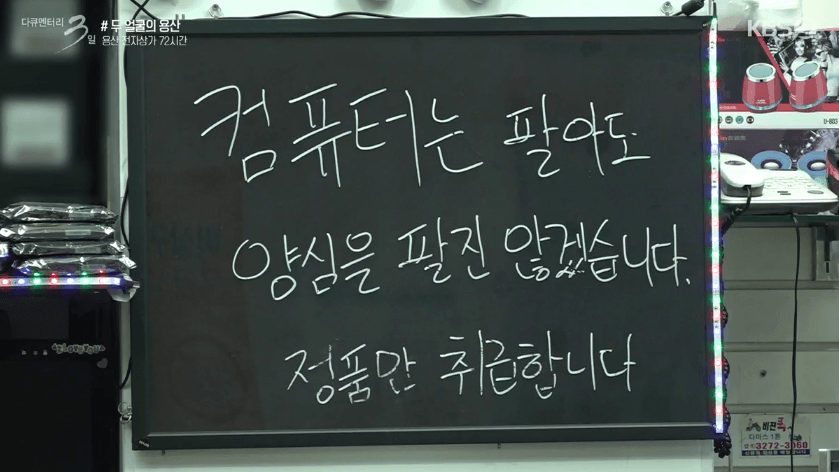 다큐멘터리 3일
# 두 얼굴의 용산
용산 전자상가 72시간
KBS
컴퓨터는 팔아도
양심을 팔진 않겠습니다.
정품만 취급합니다
U-803
비젼콕
다마스 1톤
3272-3060